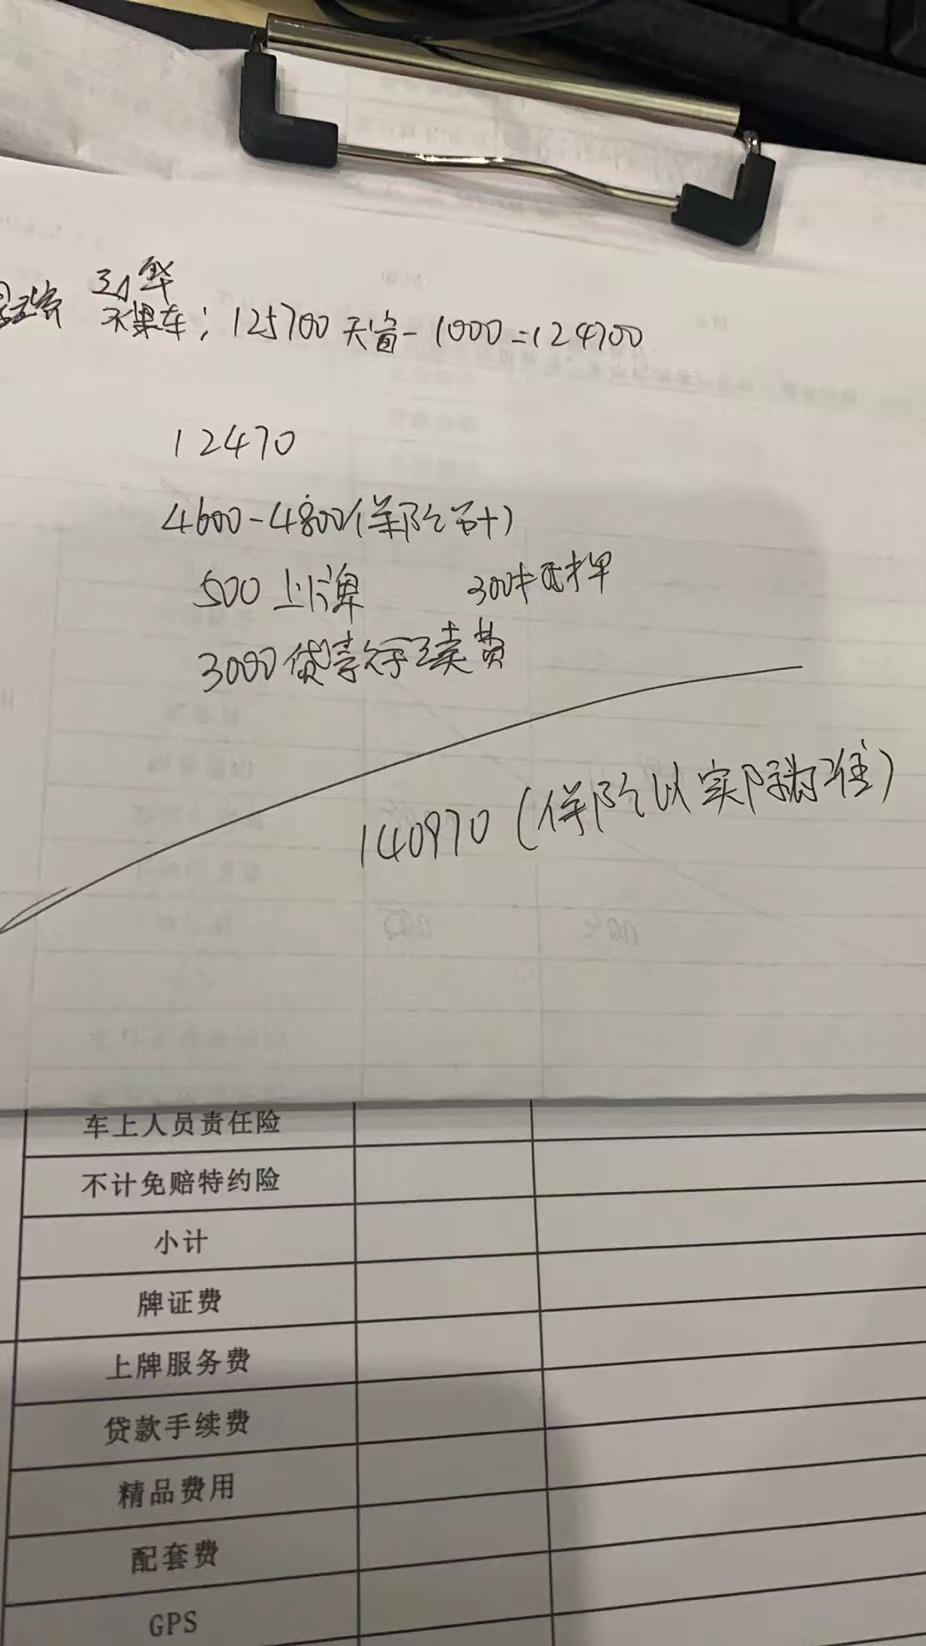 裸车：125700 天窗-1000=124700
12470
4600-4800(保险估计)
500上牌 300抵押
3000贷款手续费
140970(保险以实际为准)
车上人员责任险
不计免赔特约险
小计
牌证费
上牌服务费
贷款手续费
精品费用
配套费
GPS